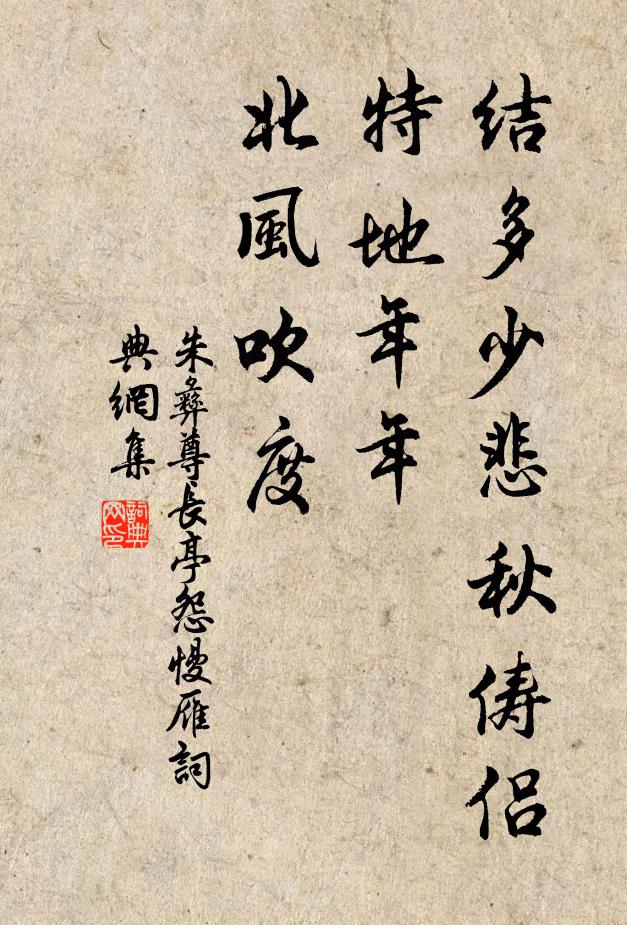 結多少悲秋儔侶
特地年年
北風吹度
朱彝尊長亭怨慢雁詞
典網集
詞典
网印